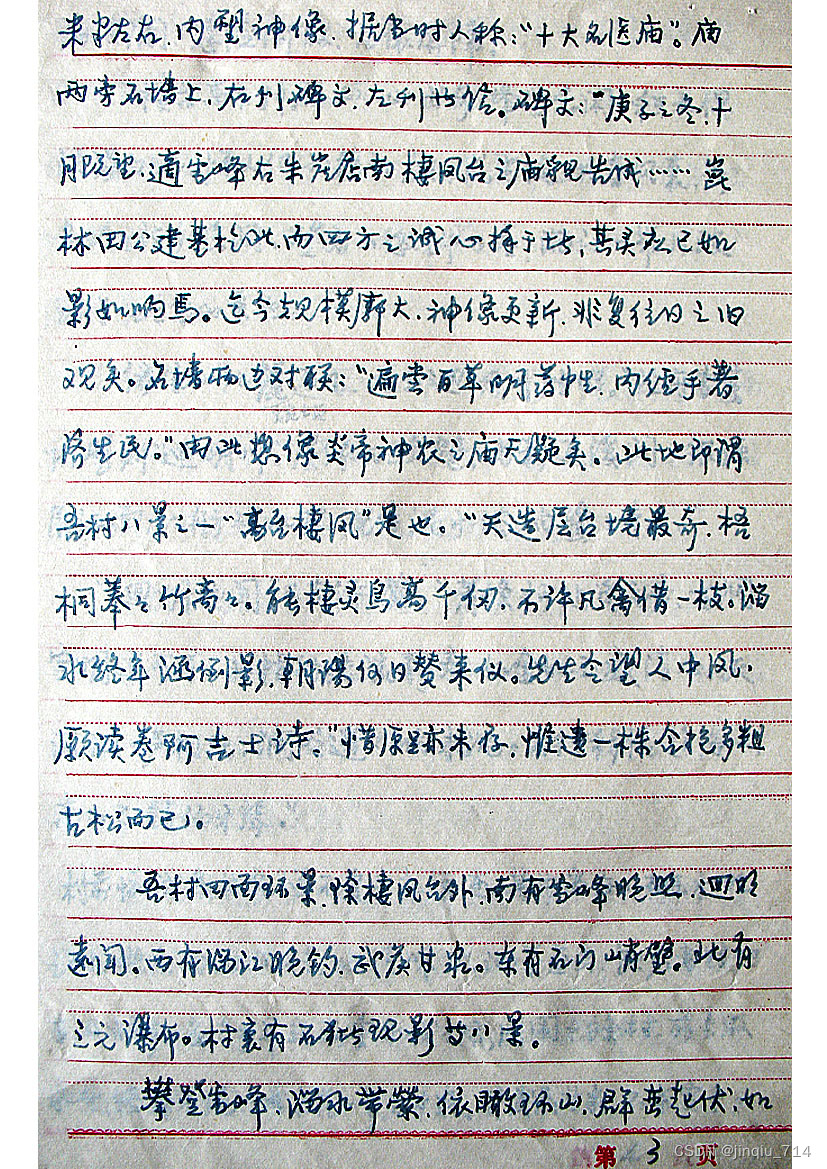 米左右，内塑神像，据当时人称：“十大名医庙”。庙
两旁石墙上，右刊碑文，左刊诗。碑文：“庚子之冬，十
月既望，適雪峰右朱岸居南棲凤台之庙观告成……崑
林田公建基於此，而四方之诚心拜于此，其灵应已如
影如响焉。迄今规模廓大，神像更新，非复往日之旧
观矣。石墙两边对联：“遍尝百草明药性，内经手著
济生民。”由此想像炎帝神农之庙无疑矣。此地即谓
吾村八景之一“高台棲凤”是也。“天造层台境最奇，梧
桐菶々竹离々。能棲灵鸟高千仞，不许凡禽借一枝。滔
水终年涵倒影，朝陽何日赞来仪。先生合望人中凤，
愿读卷阿吉士诗。”惜原跡未存，惟遗一株合抱多粗
古松而已。
吾村四面环景，除棲凤台外，南有雪峰晚照，迴
远闻。西有滔江晚钓，武侯甘泉。东有石门峭壁。北有
三元瀑布。村裏有石现影 八景。
攀登雪峰，滔水带縈，依瞰环山，群峦起伏，如
第 3 页
CSDN @jinqiu_714